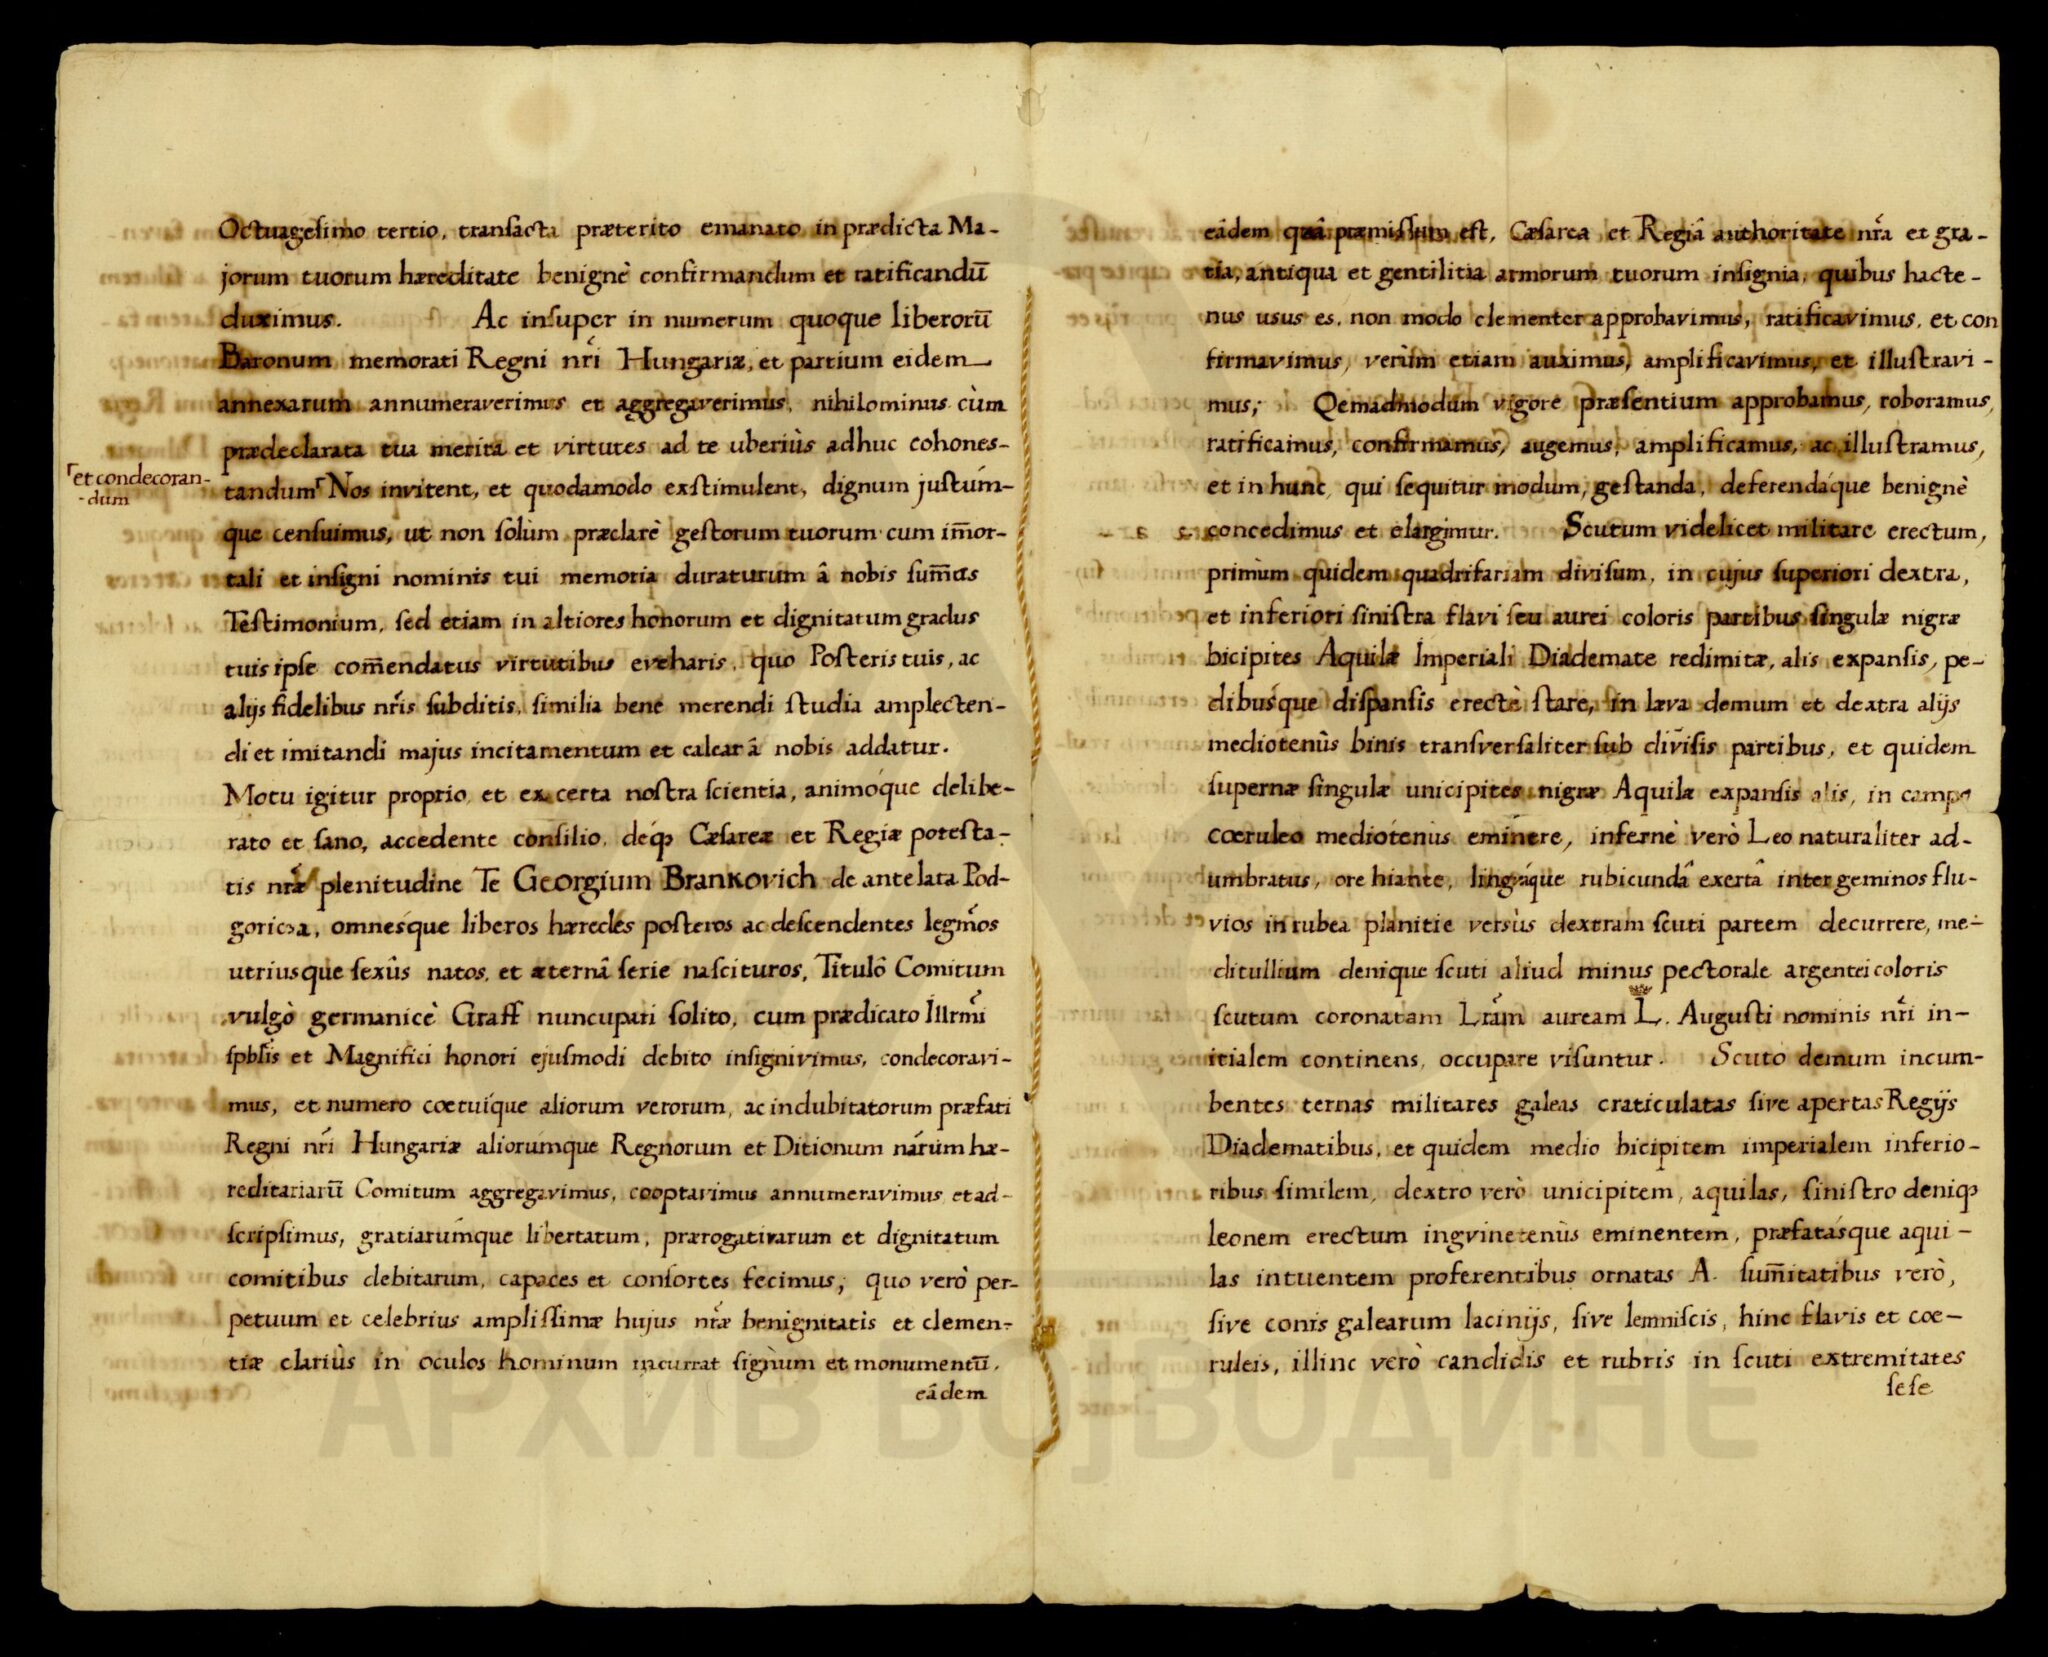 Octuagesimo tertio, transacta præterito emanato in prædicta Ma-
jorum tuorum hæreditate benignè confirmandum et ratificandū
duximus. Ac insuper in numerum quoque liberorū
Baronum memorati Regni nr̃i Hungariæ, et partium eidem
annexarum annumeraverimus et aggregaverimus, nihilominus cùm
prædeclarata tua merita et virtutes ad te uberiùs adhuc cohones-
⸢et condecoran-
-dum
tandum⸢ Nos invitent, et quodamodo exstimulent, dignum justúm-
que censuimus, ut non solùm præclarè gestorum tuorum cum im̄or-
tali et insigni nominis tui memoria duraturum â nobis sum̄as
Testimonium, sed etiam in altiores honorum et dignitatum gradus
tuis ipse com̄endatus virtutibus eveharis, quo Posteris tuis, ac
alijs fidelibus nr̃is subditis, similia bene merendi studia amplecten-
di et imitandi majus incitamentum et calcar â nobis addatur.
Motu igitur proprio, et ex certa nostra scientia, animóque delibe-
rato et sano, accedente consilio, déq₃ Cæsareæ et Regiæ potesta-
tis nr̃æ plenitudine Te Georgium Brankovich de antelata Pod-
goricza, omnesque liberos hæredes posteros ac descendentes legm̃os
utriusque sexûs natos, et æternâ serie nascituros, Titulô Comitum
vulgò germanicè Graff nuncupari solito, cum prædicato Illrm̃i
spblis et Magnifici honori ejusmodi debito insignivimus, condecoravi-
mus, et numero coetuíque aliorum verorum, ac indubitatorum præfati
Regni nr̃i Hungariæ aliorumque Regnorum et Ditionum nr̃arum hæ-
reditariarū Comitum aggregavimus, cooptavimus annumeravimus et ad-
scripsimus, gratiarúmque libertatum, prærogativarum et dignitatum
comitibus debitarum, capaces et consortes fecimus; quo verò per-
petuum et celebrius amplissimæ hujus nr̃æ benignitatis et clemen-
tiæ clariùs in oculos hominum incurrat signum et monumentū,
eâdem
eâdem quâ præmissum est, Cæsarea et Regiâ authoritate nr̃a et gra-
tia, antiqua et gentilitia armorum tuorum insignia, quibus hacte-
nus usus es, non modo clementer approbavimus, ratificavimus, et con
firmavimus, verùm etiam auximus, amplificavimus, et illustravi-
mus; Qemadmodum vigore præsentium approbamus, roboramus,
ratificamus, confirmamus, augemus, amplificamus, ac illustramus,
et in hunc, qui sequitur modum, gestanda, deferendáque benignè
concedimus et elargimur. Scutum videlicet militare erectum,
primùm quidem quadrifariam divisum, in cujus superiori dextra,
et inferiori sinistra flavi seu aurei coloris partibus singulæ nigræ
bicipites Aquilæ Imperiali Diademate redimitæ, alis expansis, pe-
dibusque dispansis erectè stare, in læva demum et dextra alijs
mediotenùs binis transversaliter sub divisis partibus, et quidem
supernæ singulæ unicipites nigræ Aquilæ expansis alis, in campo
coeruleo mediotenùs eminere, infernè verò Leo naturaliter ad-
umbratus, ore hiante, linguáque rubicundâ exertâ inter geminos flu-
vios in rubea planitie versùs dextram scuti partem decurrere, me-
ditullium denique scuti aliud minus pectorale argentei coloris
scutum coronatam Lr̃am auream L. Augusti nominis nr̃i in-
itialem continens, occupare visuntur. Scuto demum incum-
bentes ternas militares galeas craticulatas sive apertas Regijs
Diadematibus, et quidem medio bicipitem imperialem inferio-
ribus similem, dextro verò unicipitem, aquilas, sinistro deniq₃
leonem erectum ingvinetenùs eminentem, præfatásque aqui-
las intuentem proferentibus ornatas A. sum̄itatibus verò,
sive conis galearum lacinijs, sive lemniscis, hinc flavis et coe-
ruleis, illinc verò candidis et rubris in scuti extremitates
sese
АРХИВ ВОЈВОДИНЕ